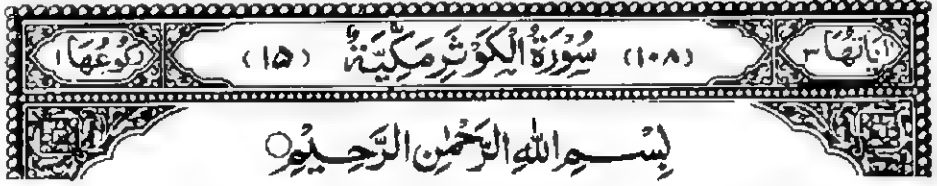 اٰیَاتُهَا ۳ (۱۰۸) سُوْرَةُ الْكَوْثَرِ مَكِّيَّةٌ (۱۵) رُكُوْعُهَا ۱
بِسْمِ اللهِ الرَّحْمٰنِ الرَّحِيْمِ